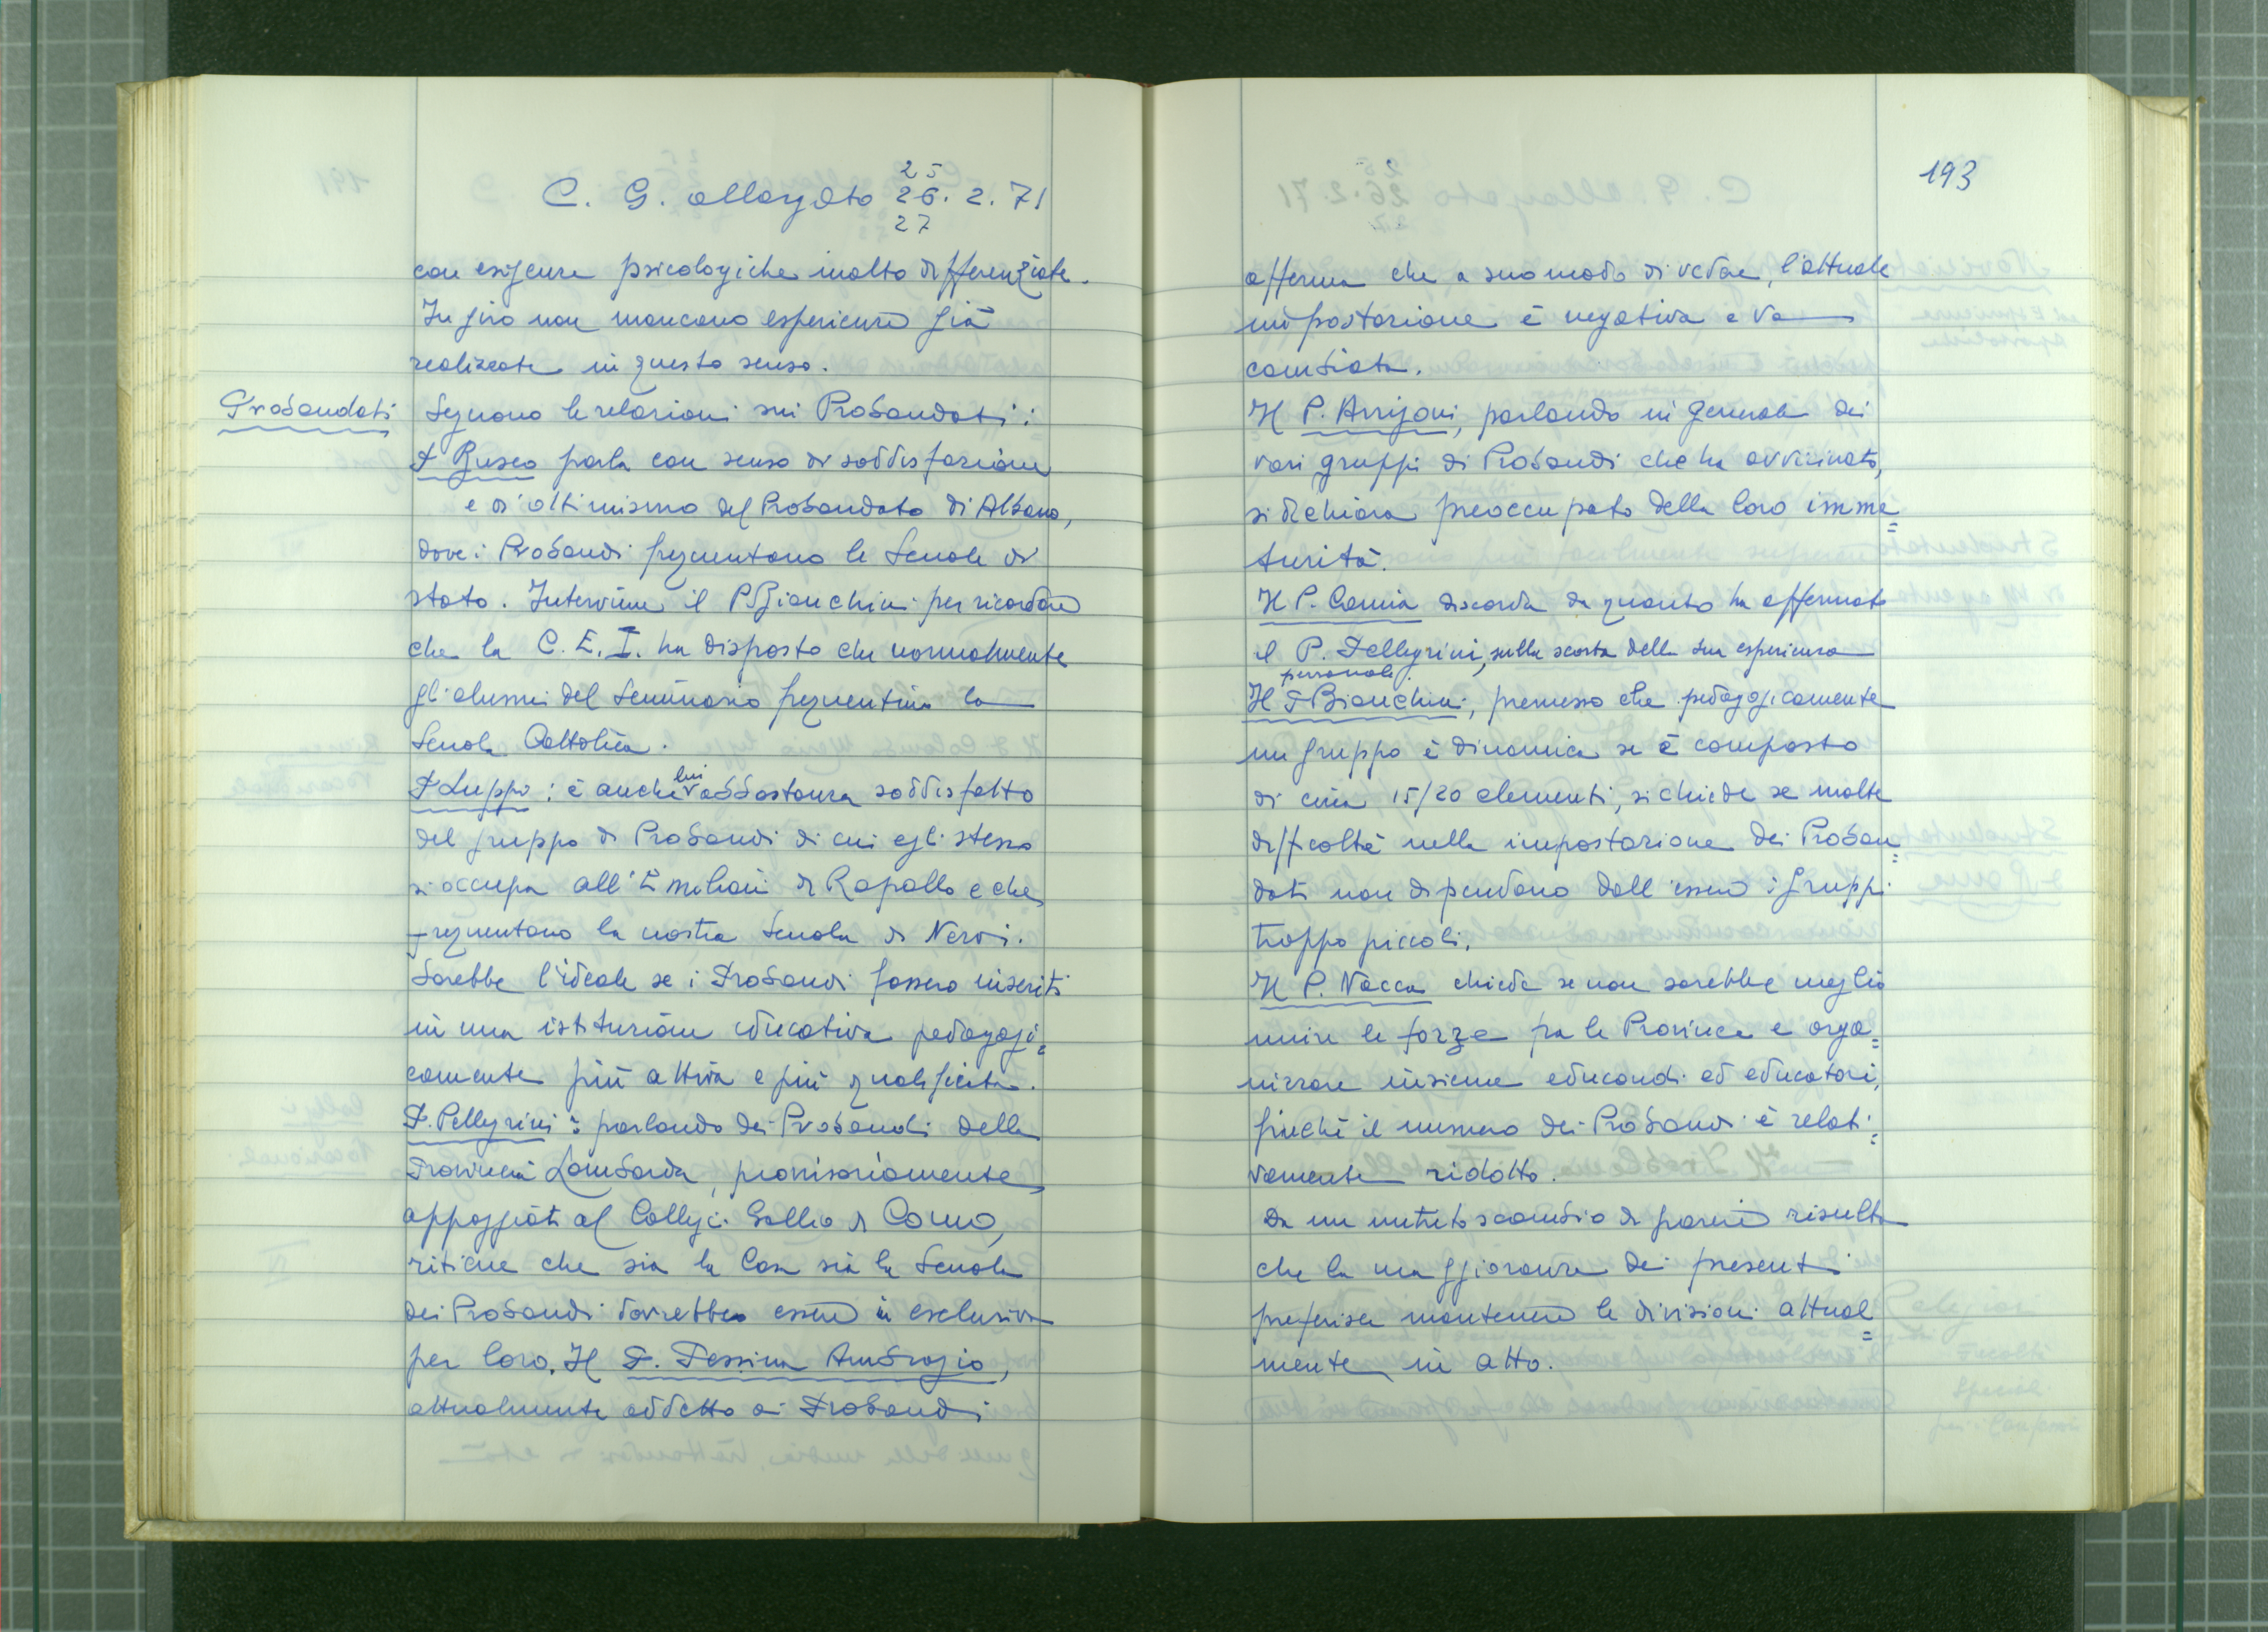 25
C. G. allargato 26. 2. 71
27
con esigenze psicologiche molto differenziate.
In giro non mancano esperienze già
realizzate in questo senso.
Probandati
Seguono le relazioni sui Probandati:
P. Busco parla con senso di soddisfazione
e di ottimismo del Probandato di Albano,
dove i Probandi frequentano le Scuole di
stato. Interviene il P. Bianchini per ricordare
che la C. E. I. ha disposto che normalmente
gli alunni del Seminario frequentino la
Scuola Cattolica.
P. Luppi: è anche lui abbastanza soddisfatto
del gruppo di Probandi di cui egli stesso
si occupa all'Emiliani di Rapallo e che
frequentano la nostra Scuola di Nervi.
Sarebbe l'ideale se i Probandi fossero inseriti
in una istituzione educativa pedagogi=
camente più attiva e più qualificata.
P. Pellegrini: parlando dei Probandi della
Provincia Lombarda, provvisoriamente
appoggiati al Collegio Gallio di Como,
ritiene che sia la Casa sia la Scuola
dei Probandi dovrebbero essere in esclusiva
per loro. Il P. Pessina Ambrogio,
attualmente addetto ai Probandi
193
afferma che a suo modo di vedere, l'attuale
impostazione è negativa e va
cambiata.
Il P. Arrigoni, parlando in generale dei
vari gruppi di Probandi che ha avvicinato,
si dichiara preoccupato della loro imma=
turità.
Il P. discorda da quanto ha affermato
il P. Pellegrini, sulla scorta della sua esperienza
personale.
Il P. Bianchini, premesso che pedagogicamente
un gruppo è dinamico se è composto
di circa 15/20 elementi, si chiede se molte
difficoltà nella impostazione dei Proban=
dati non dipendano dall'essere i gruppi
troppo piccoli.
Il P. Vacca chiede se non sarebbe meglio
unire le forze fra le Province e orga=
nizzare insieme educandi ed educatori,
finché il numero dei Probandi è relati=
vamente ridotto.
Da un nutrito scambio di pareri risulta
che la maggioranza dei presenti
preferisce mantenere le divisioni attual=
mente in atto.